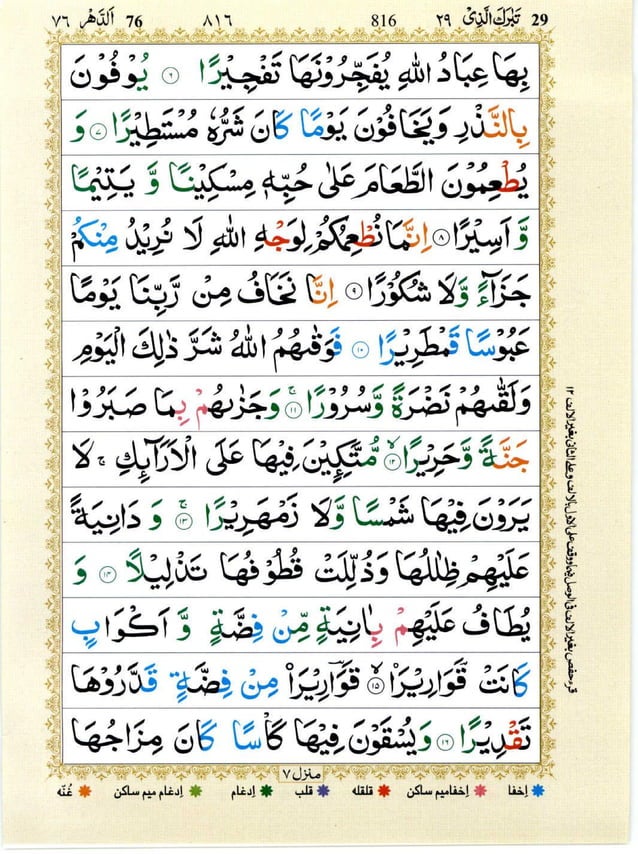 29 تَبٰرَكَ الَّذِىْ ٢٩ 816 ٨١٦ 76 اَلدَّهْر ٧٦
بِهَا عِبَادُ اللّٰهِ يُفَجِّرُوْنَهَا تَفْجِيْرًا ۝٦ يُوْفُوْنَ
بِالنَّذْرِ وَيَخَافُوْنَ يَوْمًا كَانَ شَرُّهٗ مُسْتَطِيْرًا ۝٧ وَ
يُطْعِمُوْنَ الطَّعَامَ عَلٰى حُبِّهٖ مِسْكِيْنًا وَّ يَتِيْمًا
وَّ اَسِيْرًا ۝٨ اِنَّمَا نُطْعِمُكُمْ لِوَجْهِ اللّٰهِ لَا نُرِيْدُ مِنْكُمْ
جَزَآءً وَّلَا شُكُوْرًا ۝٩ اِنَّا نَخَافُ مِنْ رَّبِّنَا يَوْمًا
عَبُوْسًا قَمْطَرِيْرًا ۝١٠ فَوَقٰىهُمُ اللّٰهُ شَرَّ ذٰلِكَ الْيَوْمِ
وَلَقّٰىهُمْ نَضْرَةً وَّسُرُوْرًا ۝١١ۚ وَجَزٰىهُمْ بِمَا صَبَرُوْا
جَنَّةً وَّحَرِيْرًا ۝١٢ۙ مُّتَّكِئِيْنَ فِيْهَا عَلَى الْاَرَآئِكِ ۚ لَا
يَرَوْنَ فِيْهَا شَمْسًا وَّلَا زَمْهَرِيْرًا ۝١٣ۚ وَ دَانِيَةً
عَلَيْهِمْ ظِلٰلُهَا وَذُلِّلَتْ قُطُوْفُهَا تَذْلِيْلًا ۝١٤ وَ
يُطَافُ عَلَيْهِمْ بِاٰنِيَةٍ مِّنْ فِضَّةٍ وَّ اَكْوَابٍ
كَانَتْ قَوَارِيْرَا۠ ۝١٥ۙ قَوَارِيْرَا۠ مِنْ فِضَّةٍ قَدَّرُوْهَا
تَقْدِيْرًا ۝١٦ وَيُسْقَوْنَ فِيْهَا كَاْسًا كَانَ مِزَاجُهَا
منزل ٧
اِخفا اِخفامیم ساکن قلقله قلب اِدغام اِدغام میم ساکن غُنّه
قرء حفص بغير الالف فى الوصل فيهما ووقف على الاول بالالف وعلى الثانى بغير الالف ١٢